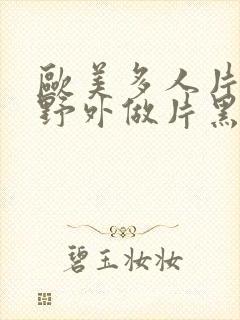 歐美多人片
野外做片黑
碧玉妝妝